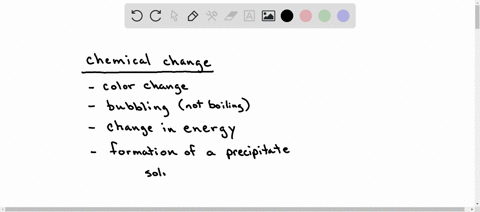 chemical change
- color change
- bubbling (not boiling)
- change in energy
- formation of a precipitate
soli